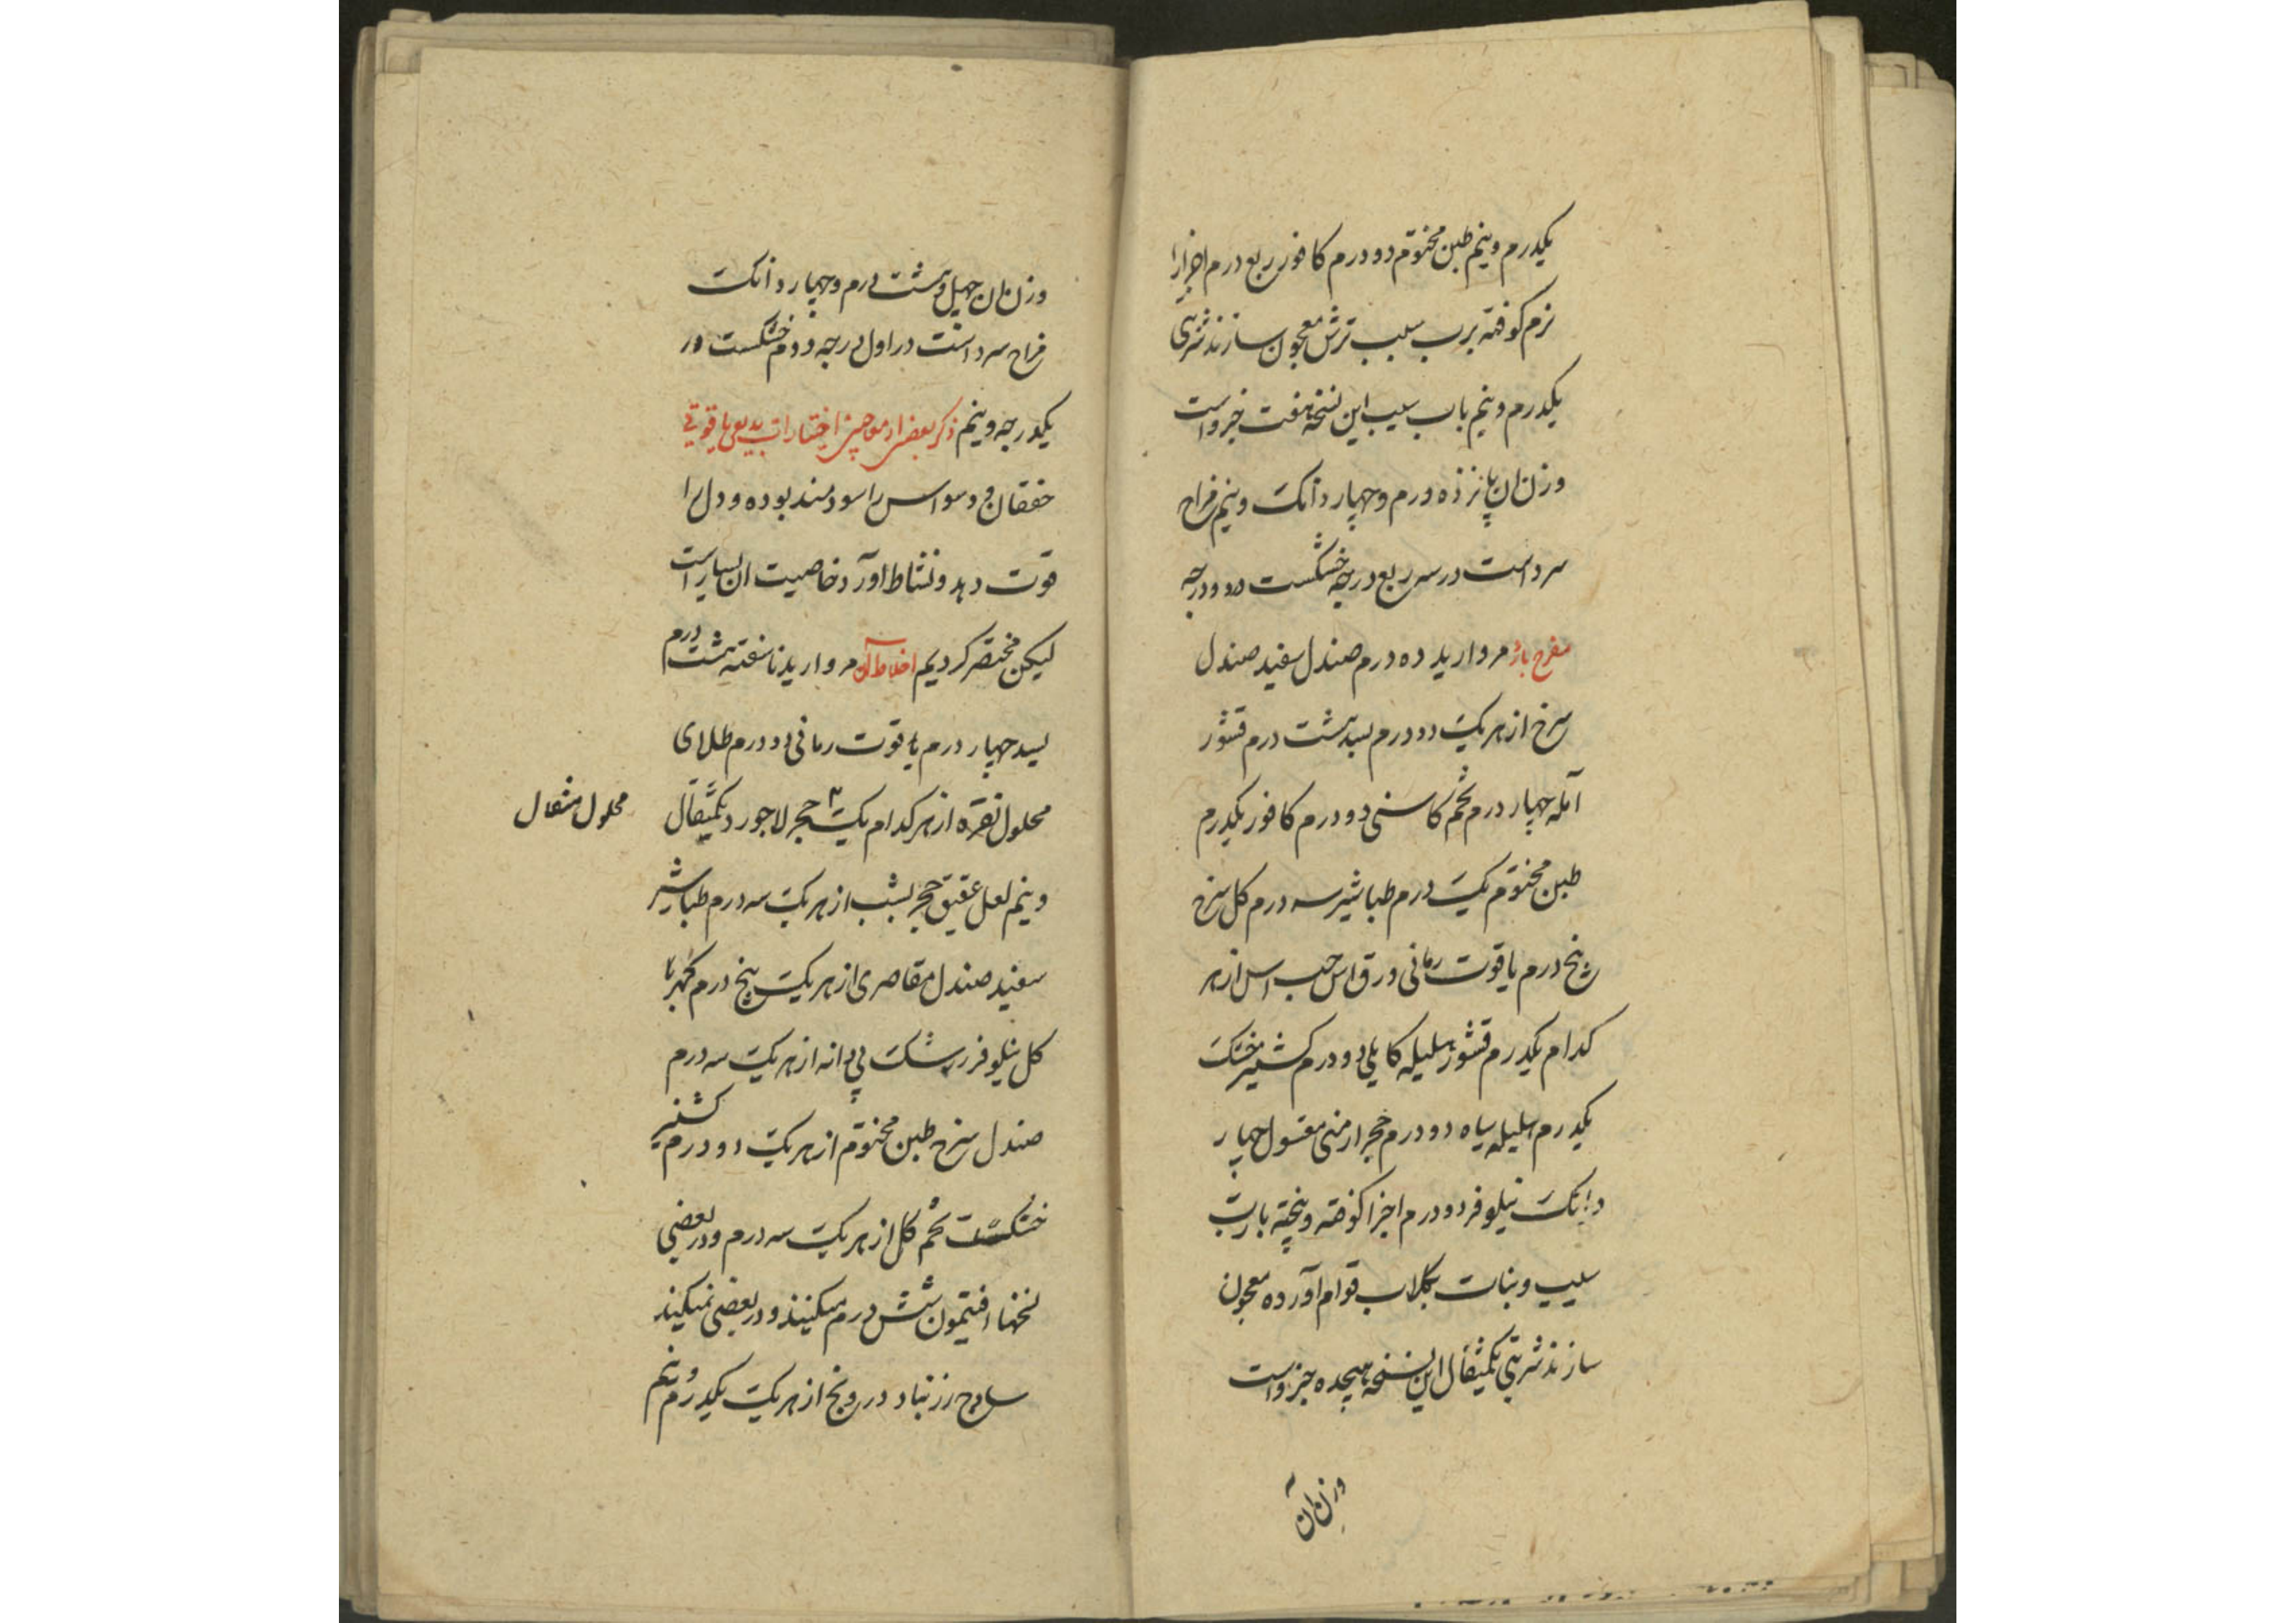 یکدرم و نیم طین مختوم دو درم کافور ربع درم اجزا را
نرم کوفته برب سیب ترش معجون سازند شربتی
یکدرم و نیم باب سیب این نسخه هفت جزو است
وزن ان پانزده درم و چهار دانک و نیم مزاج
سرد است در سه ربع درجه خشکست در دو درجه
مفرح بارد مروارید ده درم صندل سفید صندل
سرخ از هر یک دو درم بسد هشت درم قشور
آمله چهار درم تخم کاسنی دو درم کافور یکدرم
طین مختوم یک درم طباشیر سه درم کل سرخ
پنج درم یاقوت رمانی ورق اس حب اس از هر
کدام یکدرم قشور هلیله کابلی دو درم کشنیز خشک
یکدرم هلیله سیاه دو درم حجر ارمنی مغسول چهار
دانک نیلوفر دو درم اجزا کوفته و پخته با رب
سیب و نبات بکلاب قوام آورده معجون
سازند شربتی یکمثقال این نسخه هیجده جزو است
وزن آن
وزن ان چهل و هشت درم و چهار دانک
مزاج سرد است در اول درجه دوم خشکست در
یکدرجه و نیم ذکر بعضی از معاجین اختیارات بدیعی یاقوتی
خفقان و وسواس را سودمند بوده و دل را
قوت دهد و نشاط اورد خاصیت ان بسیار است
لیکن مختصر کردیم اخلاط آن مروارید ناسفته هشت درم
بسد چهار درم یاقوت رمانی دو درم طلای
محلول نقره از هر کدام یک حجر لاجورد یکمثقال
محلول مثقال
و نیم لعل عقیق حجر یشب از هر یک سه درم طباشیر
سفید صندل مقاصری از هر یک پنج درم کهربا
کل نیلوفر زرشک بی دانه از هر یک سه درم
صندل سرخ طین مختوم از هر یک دو درم کشنیز
خشکست تخم کل از هر یک سه درم و در بعضی
نسخها افتیمون شش درم میکنند و در بعضی نمیکنند
سادج زرنباد درونج از هر یک یکدرم و نیم